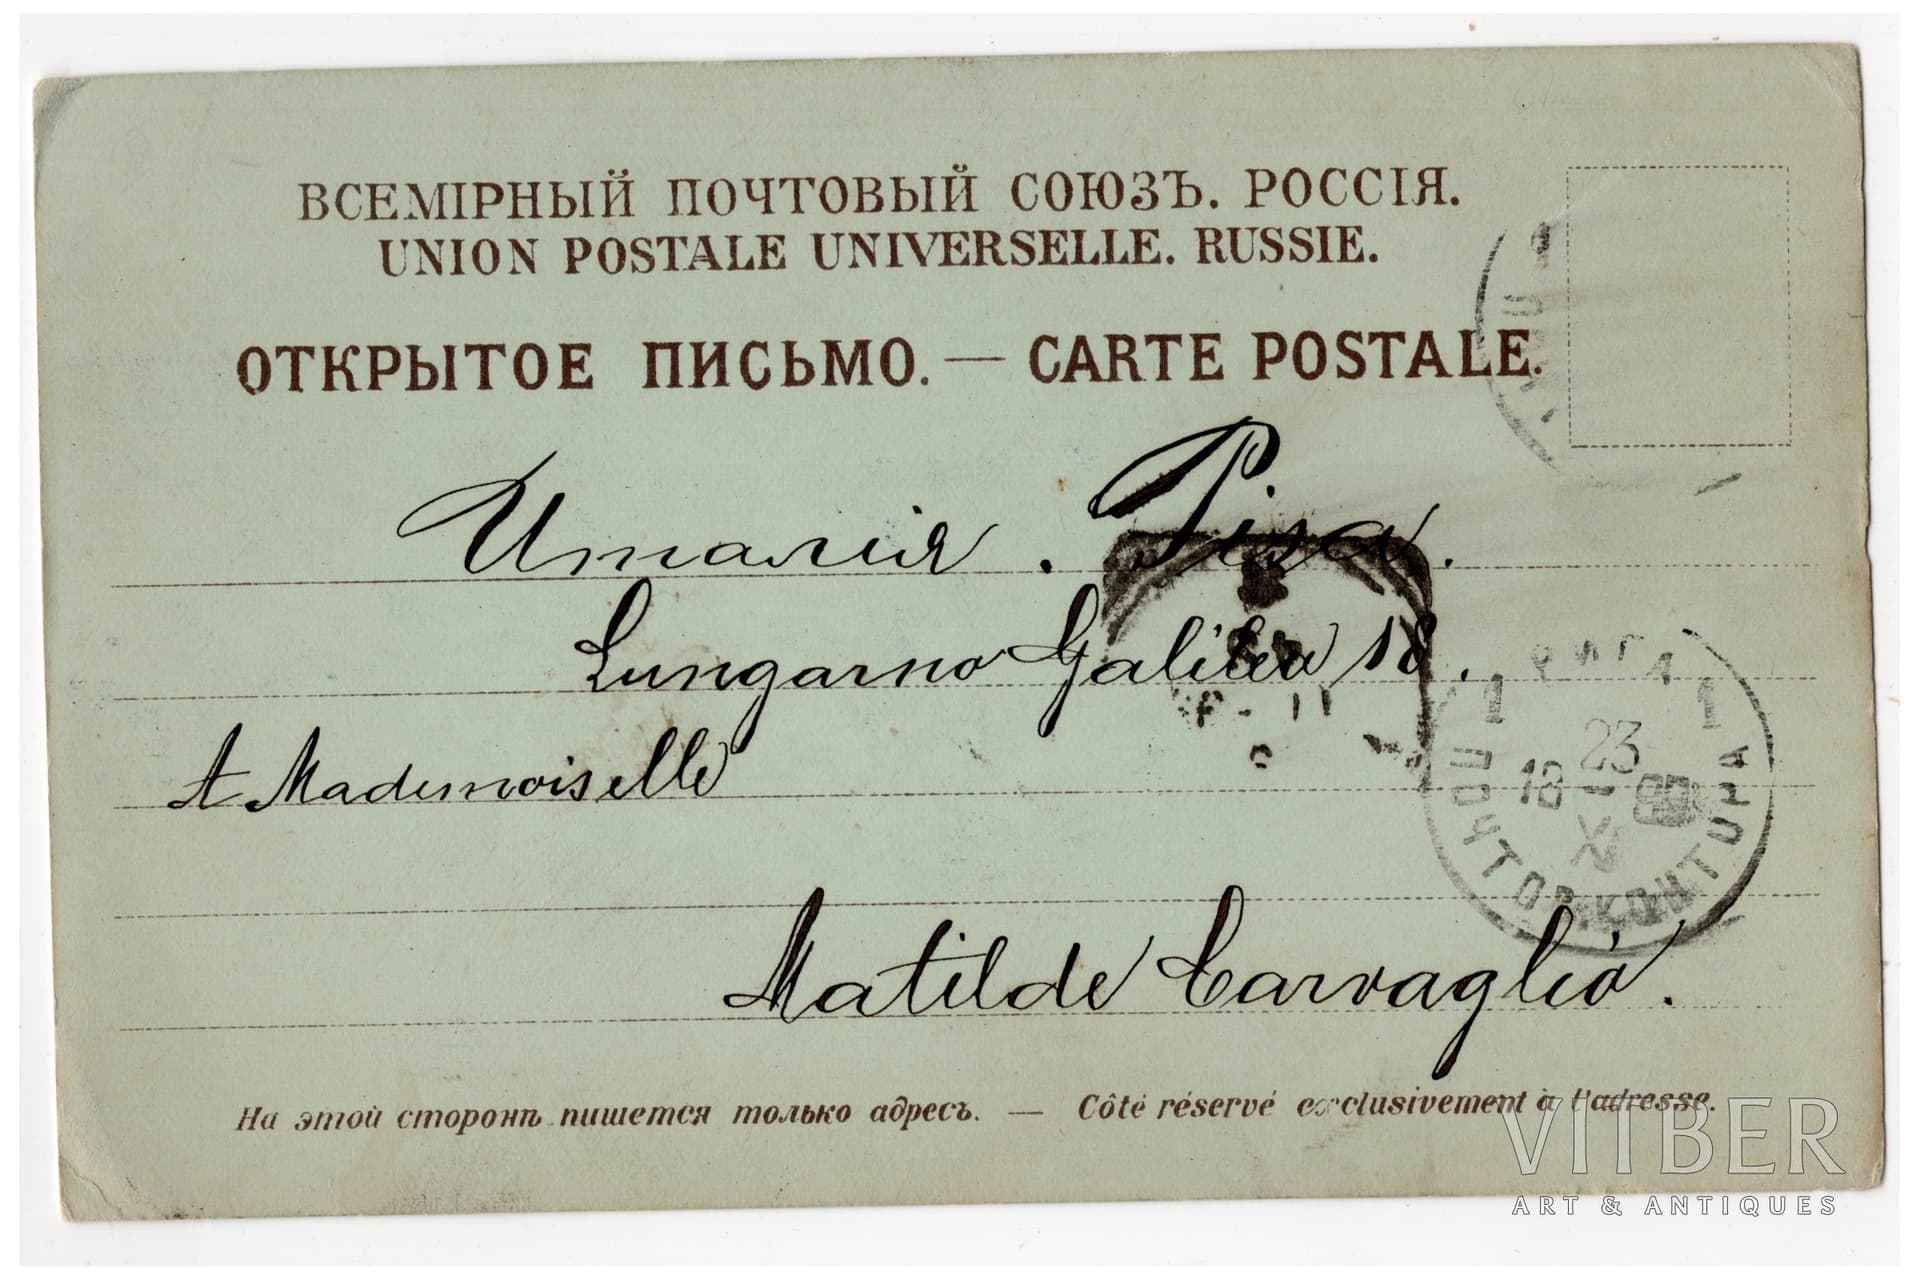 ВСЕМІРНЫЙ ПОЧТОВЫЙ СОЮЗЪ. РОССІЯ.
UNION POSTALE UNIVERSELLE. RUSSIE.
ОТКРЫТОЕ ПИСЬМО. — CARTE POSTALE.
Италія. Pisa.
Lungarno Galileo 18.
A Mademoiselle
Matilde Carvaglio.
РИГА
1 1
23
18
XI
ПОЧТОВ. КОНТОРА
На этой сторонѣ пишется только адресъ. — Côté réservé exclusivement à l'adresse.
VITBER
ART & ANTIQUES